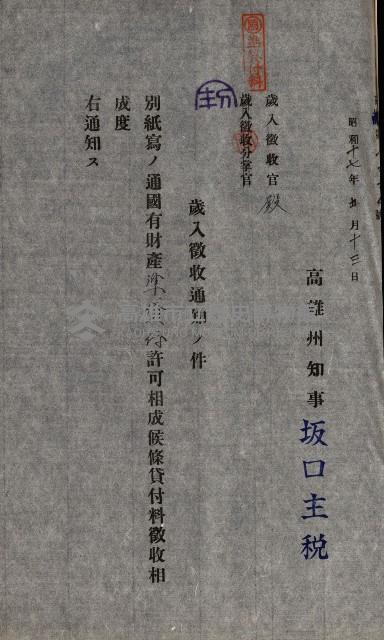 昭和十七年 月十三日
高雄州知事 坂口主税
歳入徴收官 殿
歳入徴收分掌官
歳入徴收通知ノ件
別紙寫ノ通國有財產 許可相成候條貸付料徴收相
成度
右通知ス